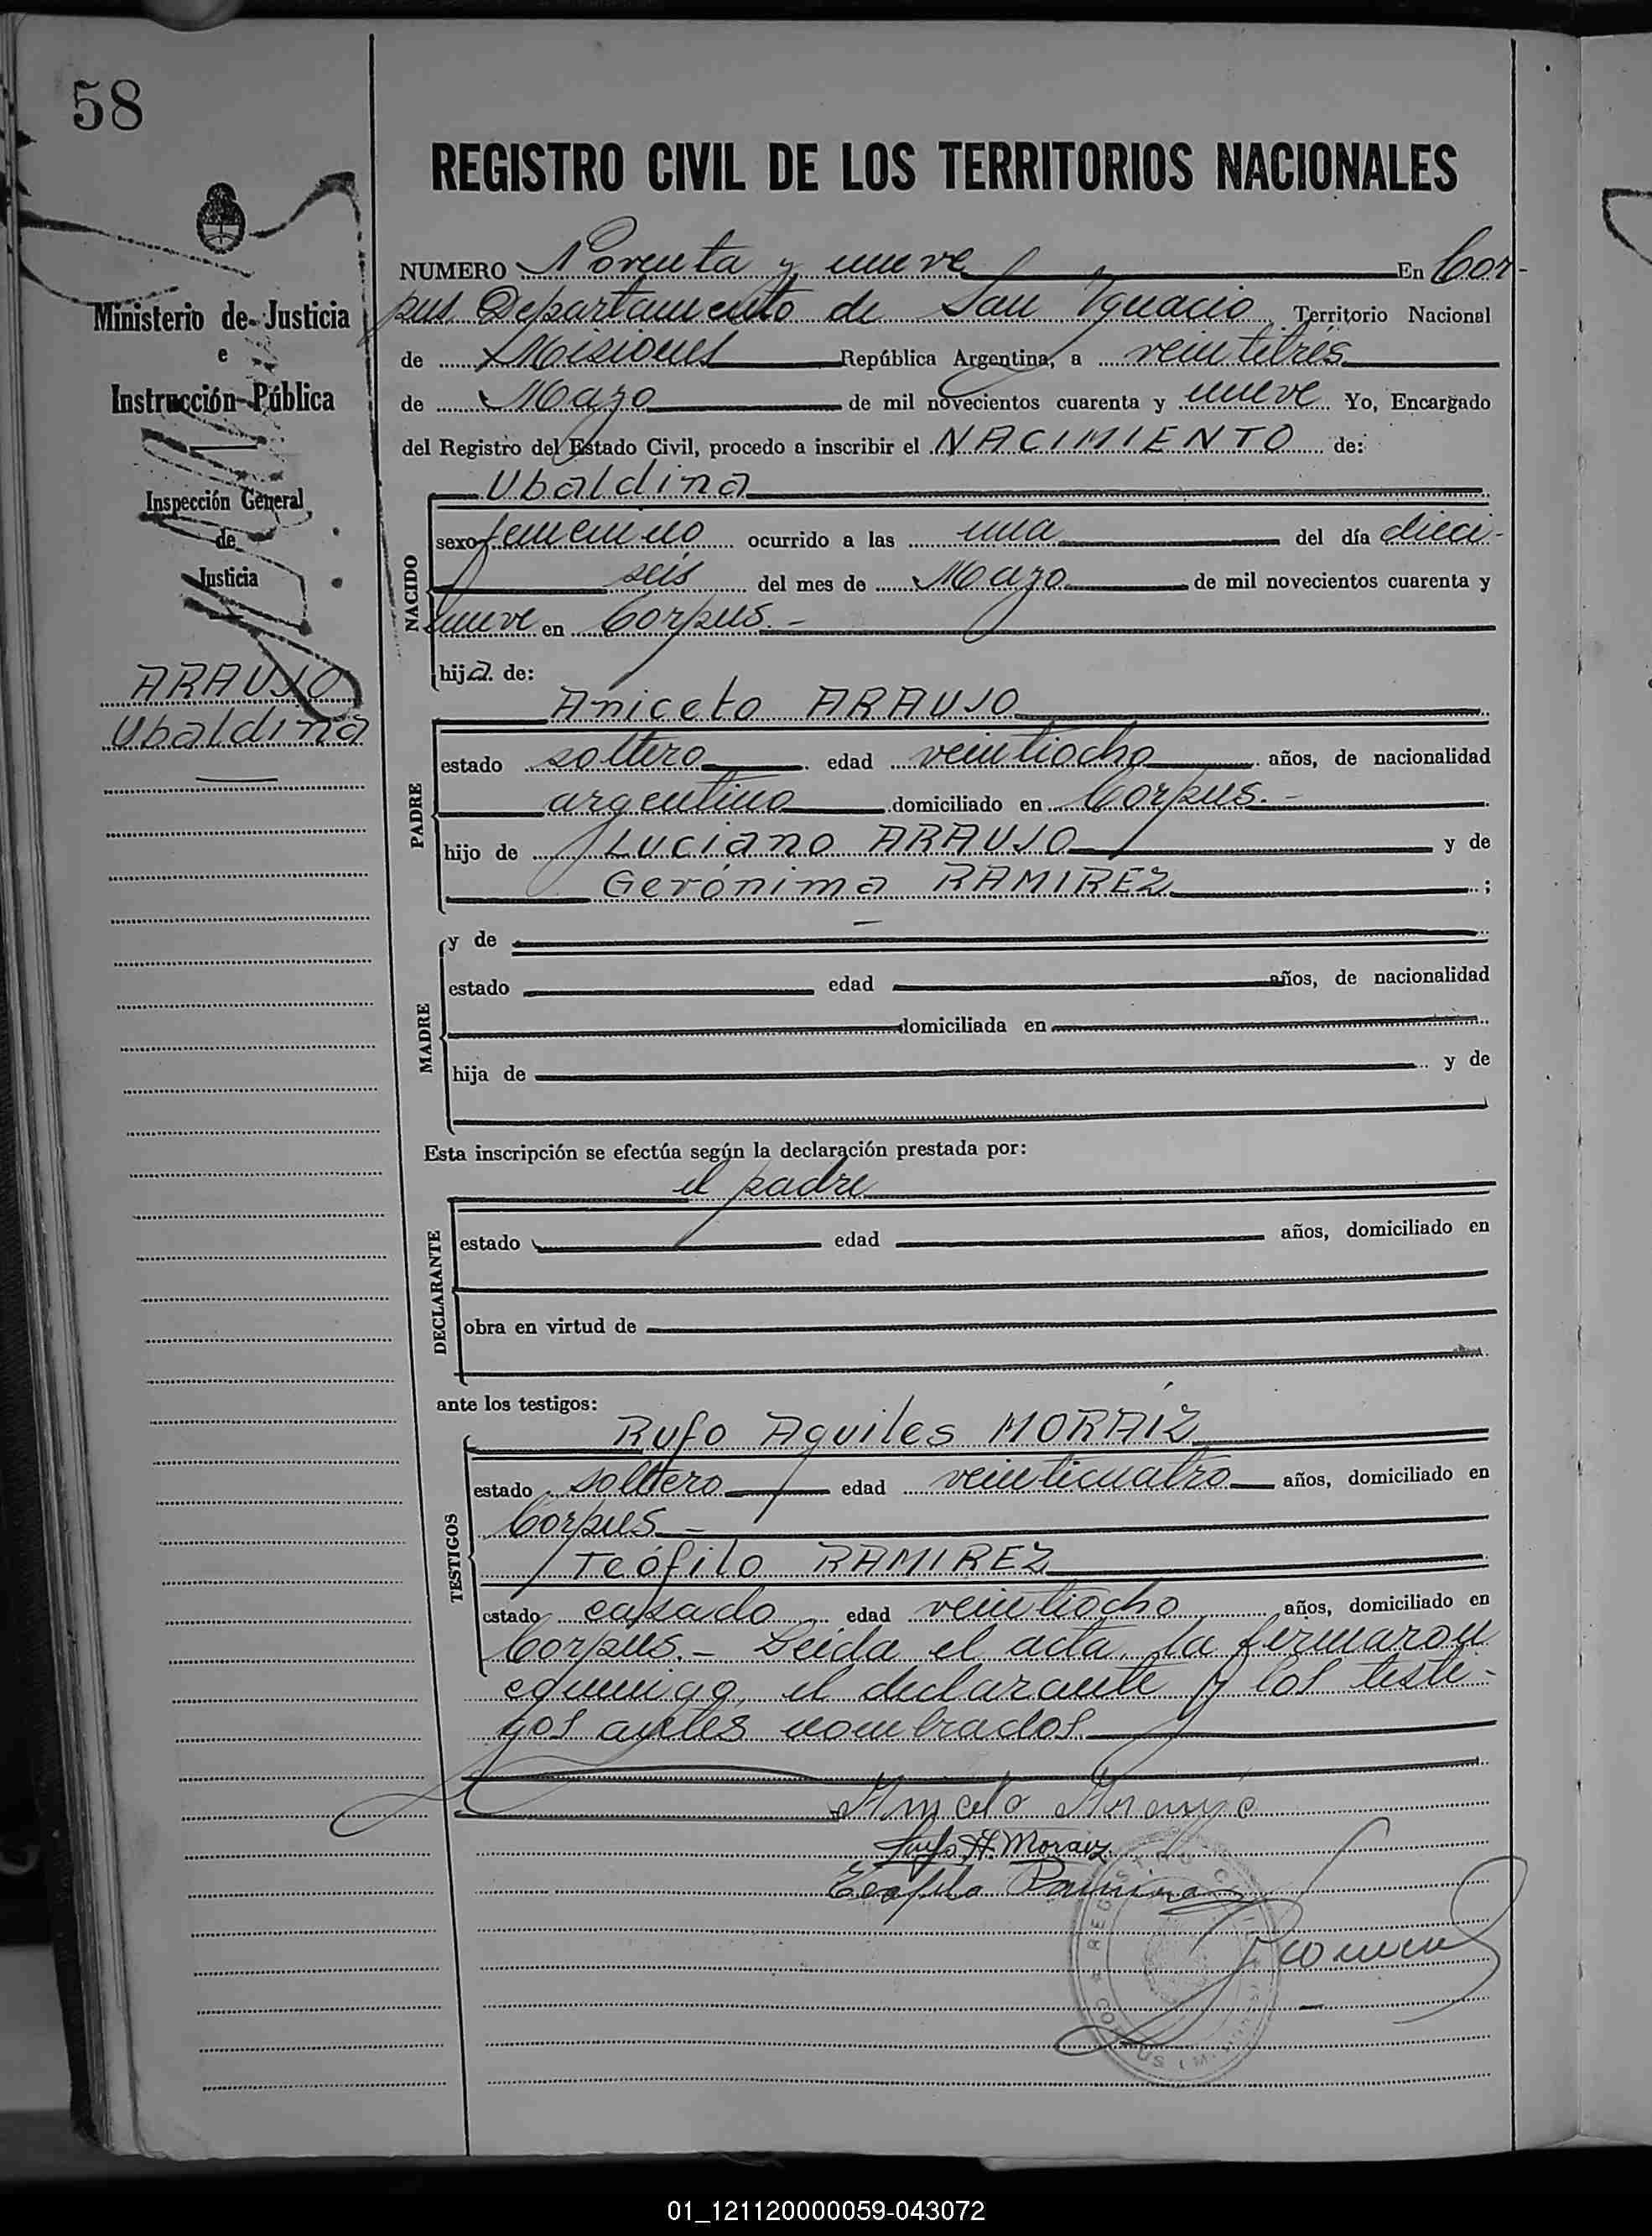 58
REGISTRO CIVIL DE LOS TERRITORIOS NACIONALES
Ministerio de Justicia
e
Instrucción Pública
Inspección General
de
Justicia
ARAUJO
Ubaldina
NUMERO Noventa y nueve En Cor-
pus Departamento de San Ygnacio Territorio Nacional
de Misiones República Argentina, a veintitrés
de Mayo de mil novecientos cuarenta y nueve Yo, Encargado
del Registro del Estado Civil, procedo a inscribir el NACIMIENTO de:
Ubaldina
NACIDO
sexo femenino ocurrido a las una del día dieci-
seis del mes de Mayo de mil novecientos cuarenta y
nueve en Corpus.-
hija de:
Aniceto ARAUJO
PADRE
estado soltero edad veintiocho años, de nacionalidad
argentino domiciliado en Corpus.-
hijo de Luciano ARAUJO y de
Gerónima RAMIREZ ;
MADRE
y de
estado edad años, de nacionalidad
domiciliada en
hija de y de
Esta inscripción se efectúa según la declaración prestada por:
el padre
DECLARANTE
estado edad años, domiciliado en
obra en virtud de
ante los testigos:
Rufo Aquiles MORAIZ
TESTIGOS
estado soltero edad veinticuatro años, domiciliado en
Corpus-
Teófilo RAMIREZ
estado casado edad veintiocho años, domiciliado en
Corpus.- Leída el acta, la firmaron
conmigo, el declarante y los testi-
gos antes nombrados.
Aniceto Araujo
Rufo A. Moraiz
Teofilo Ramirez
REGISTRO CIVIL CORPUS
01_121120000059-043072